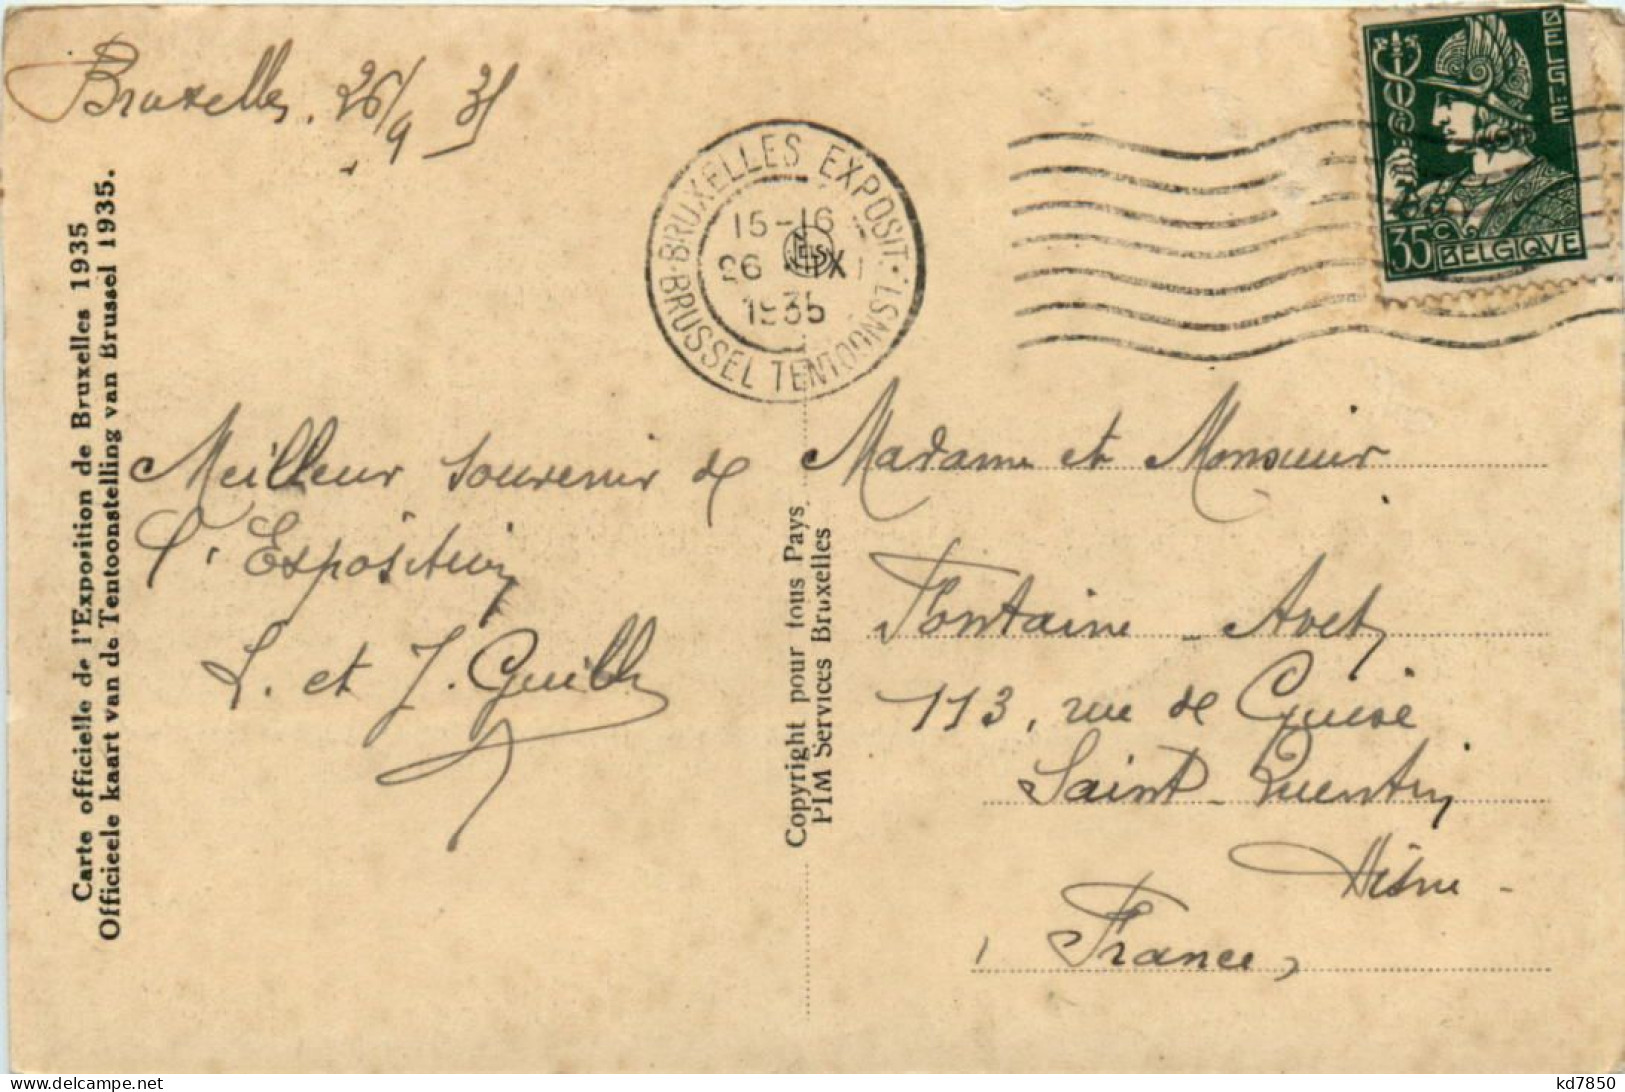 Bruxelles. 26/9 35
BRUXELLES EXPOSIT.
15-16
26 IX
1935
BRUSSEL TENTOONST.
BELGIQUE
35c BELGIQVE
Carte officielle de l'Exposition de Bruxelles 1935
Officieele kaart van de Tentoonstelling van Brussel 1935.
Meilleur souvenir de
l'Exposition
L. et J.
Copyright pour tous Pays
PIM Services Bruxelles
Madame et Monsieur
Fontaine - Avet
113, rue de Guise
Saint-Quentin
Aisne -
France,
delcampe.net
kd7850